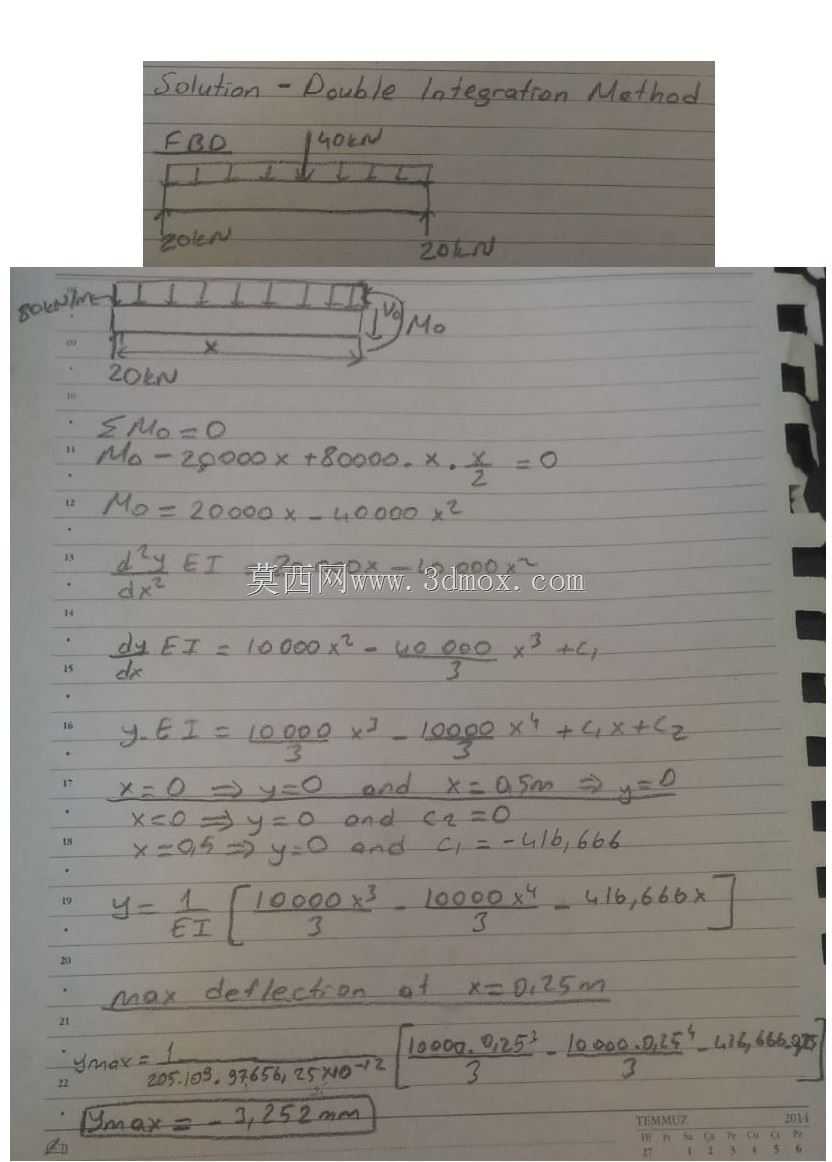 Solution - Double Integration Method
FBD
40kN
20kN
20kN
80kN/m
V₀
M₀
x
20kN
ΣM₀ = 0
M₀ - 20000x + 80000. x . x/2 = 0
M₀ = 20000x - 40000x²
d²y/dx² EI = 20000x - 40000x²
莫西网www.3dmox.com
dy/dx EI = 10000x² - 40 000/3 x³ + c₁
y. EI = 10 000/3 x³ - 10000/3 x⁴ + c₁x + c₂
x=0 ⇒ y=0 and x=0,5m ⇒ y=0
x=0 ⇒ y=0 and c₂=0
x=0,5 ⇒ y=0 and c₁ = -416,666
y = 1/EI [10000x³/3 - 10000x⁴/3 - 416,666x]
max deflection at x=0,25m
ymax = 1/205.10⁹.97656,25x10⁻¹² [10000.0,25³/3 - 10000.0,25⁴/3 - 416,666.0,25]
ymax = - 3,252mm
09
10
11
12
13
14
15
16
17
18
19
20
21
22
TEMMUZ 2014
Pt Sa Ça Pe Cu Ct Pz
27 1 2 3 4 5 6